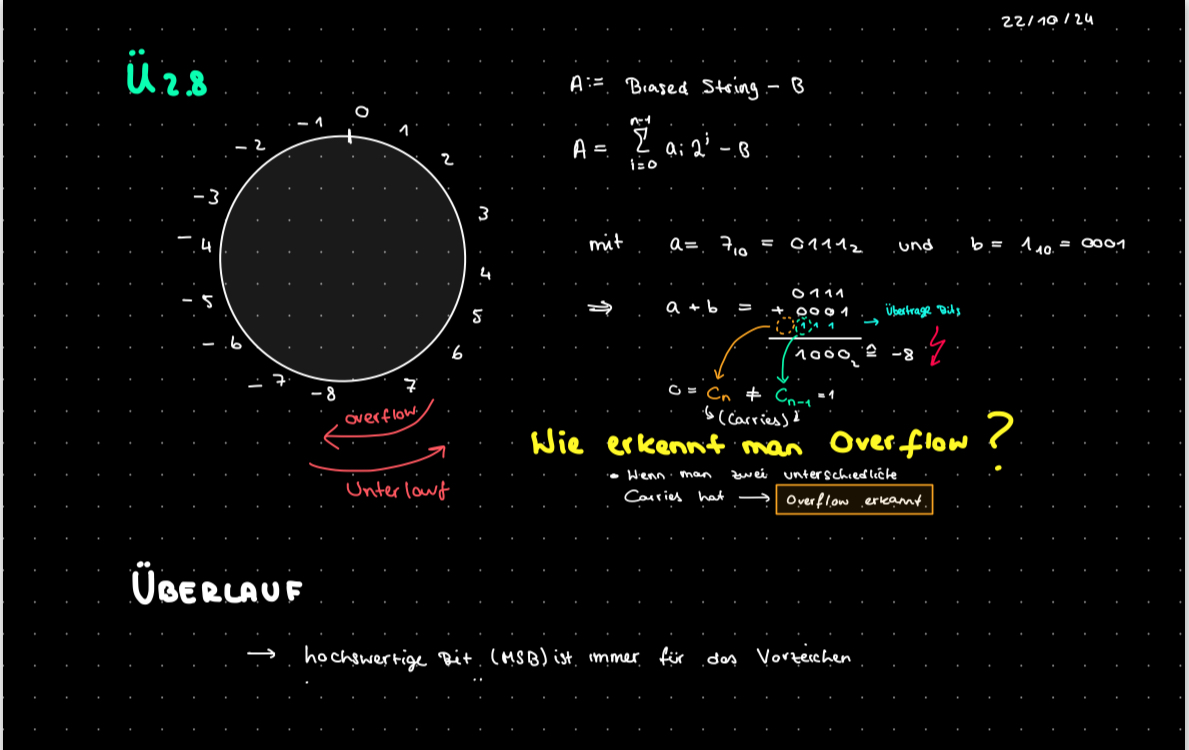 22/10/24
Ü 2.8
0
-1
1
-2
2
-3
3
-4
4
-5
5
-6
6
-7
7
-8
overflow
Unterlauf
A := Biased String - B
A = n-1 ∑ i=0 aᵢ 2ⁱ - B
mit a = 7₁₀ = 0111₂ und b = 1₁₀ = 0001
⇒ a + b = 0111
+ 0001
1 1 1 → Überträge Bits
1000₂ ≙ -8
0 = Cₙ ≠ Cₙ₋₁ = 1
↳ (Carries)
Wie erkennt man Overflow ?
• Wenn man zwei unterschiedliche
Carries hat → Overflow erkannt.
ÜBERLAUF
→ hochswertige Bit (MSB) ist immer für das Vorzeichen